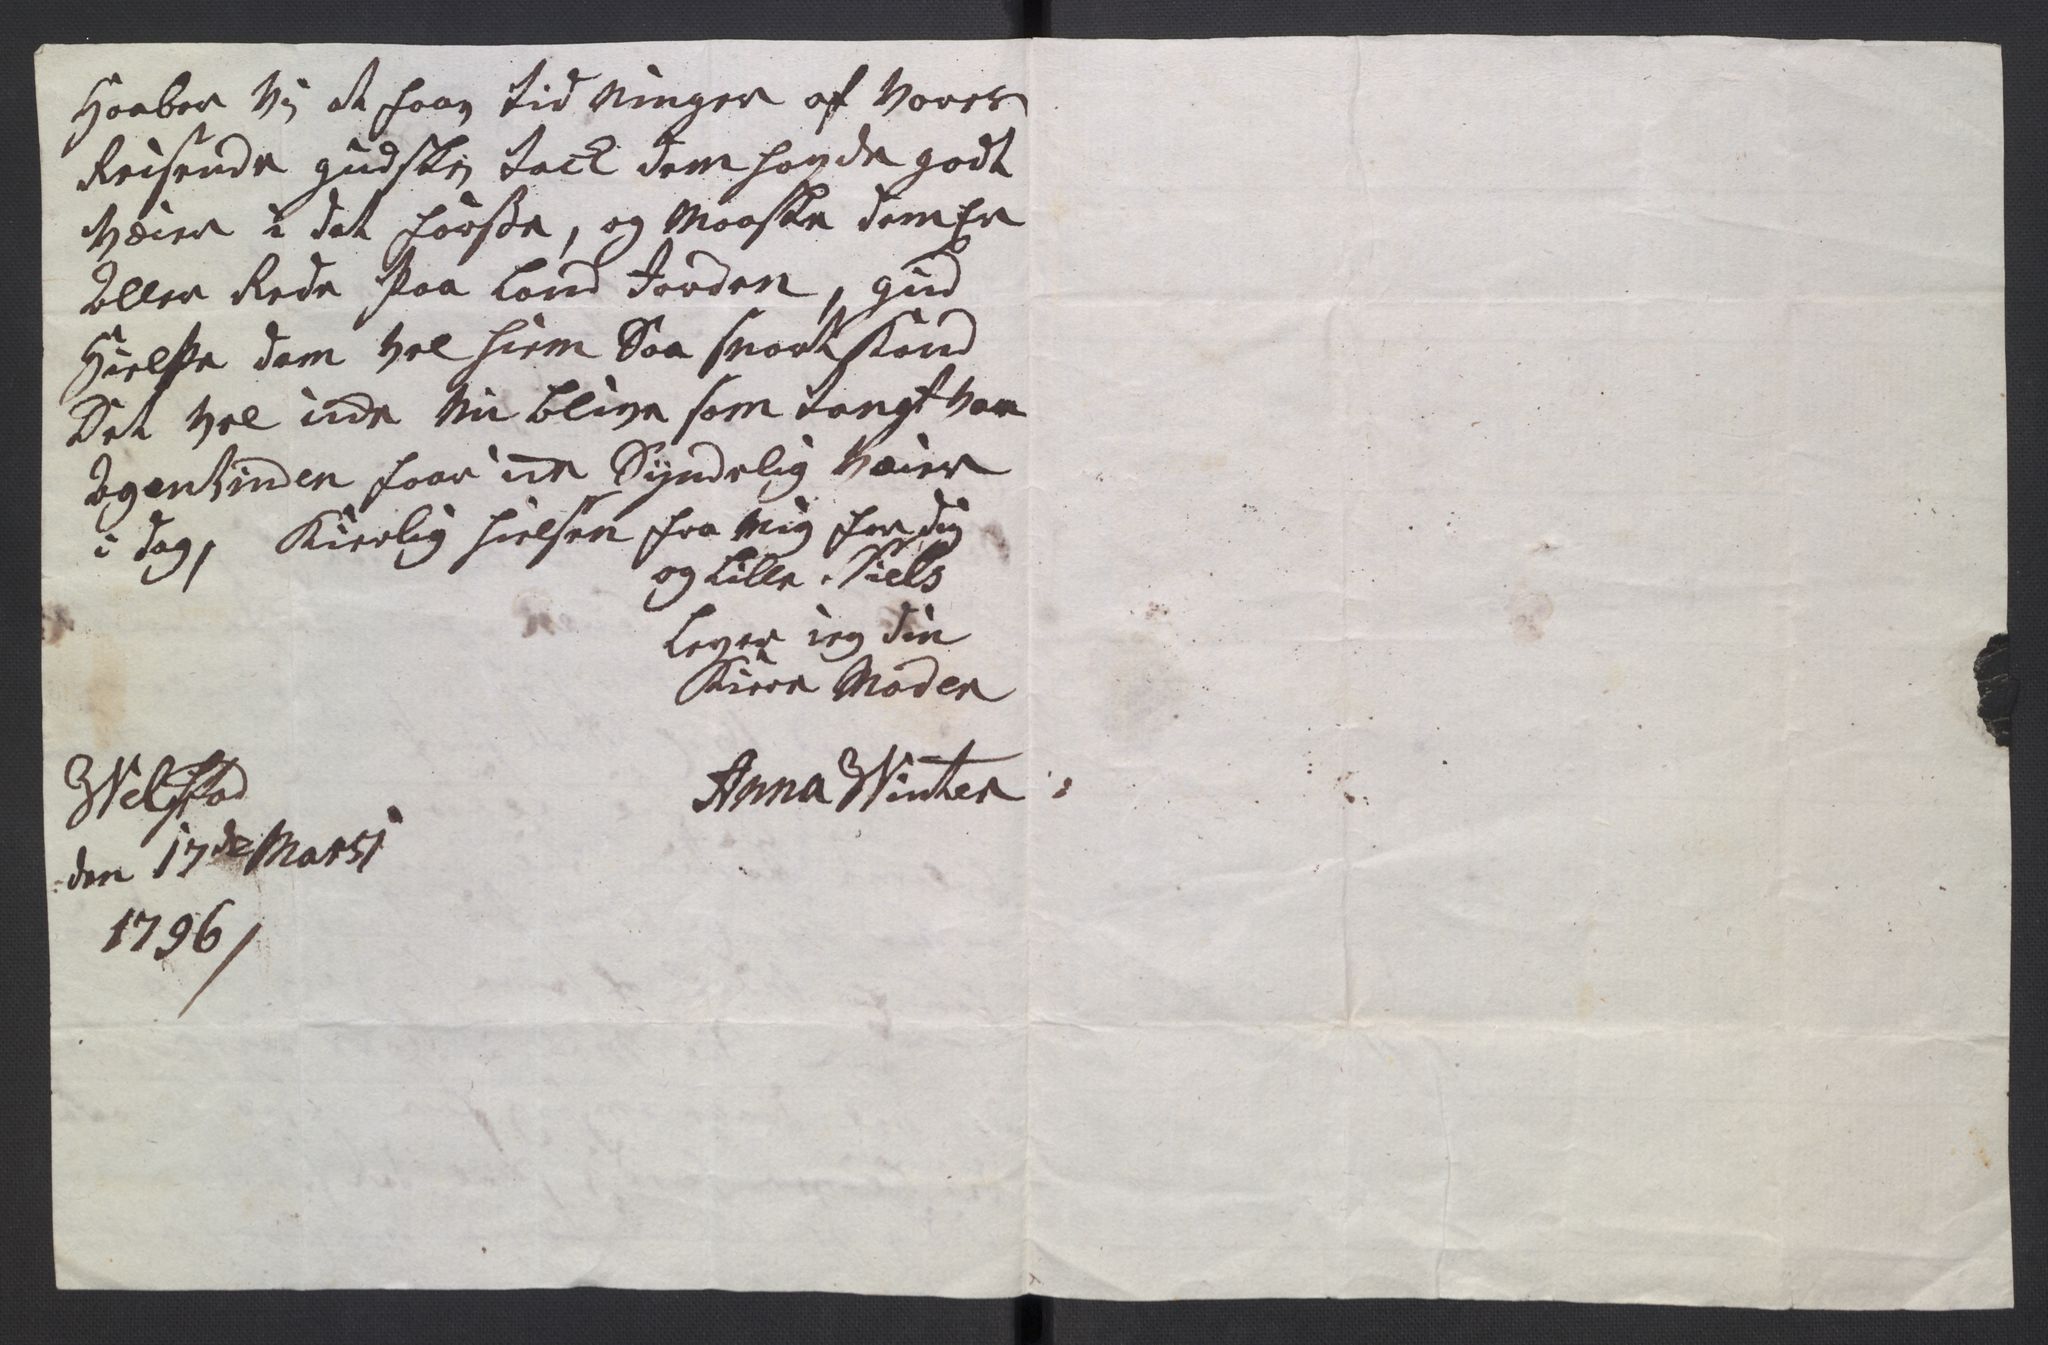 Haaber Vj at faa tidninger af Vores
Reisende gudskej tack dem havde godt
Væier i det første, og Maaske dem Er
aller Rede paa Land Jorden, gud
Hielpe dem vel hiem Saa snart Kand
Det vel inde Nu blive som langt var
igen Vinden faar un Syndelig Væier
i dag, Kierlig hielsen fra Mig for dig
og Lille Niels
Lever ieg din
Kiere Moder
Anna Winter
Welstad
den 17de Marsi
1796